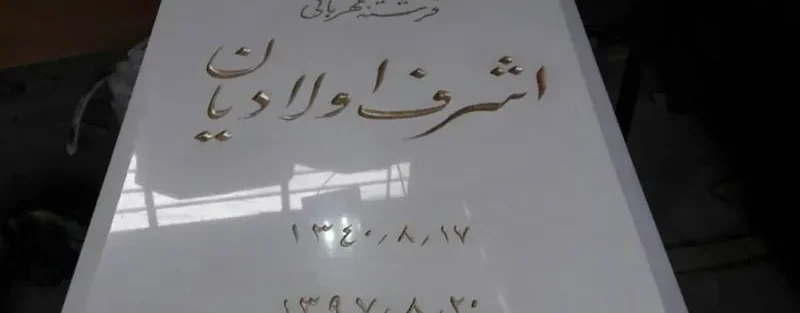 فرشته مهربانی
اشرف اولادیان
۱۳۴۰٫۸٫۱۷
۱۳۹۷٫۸٫۲۰